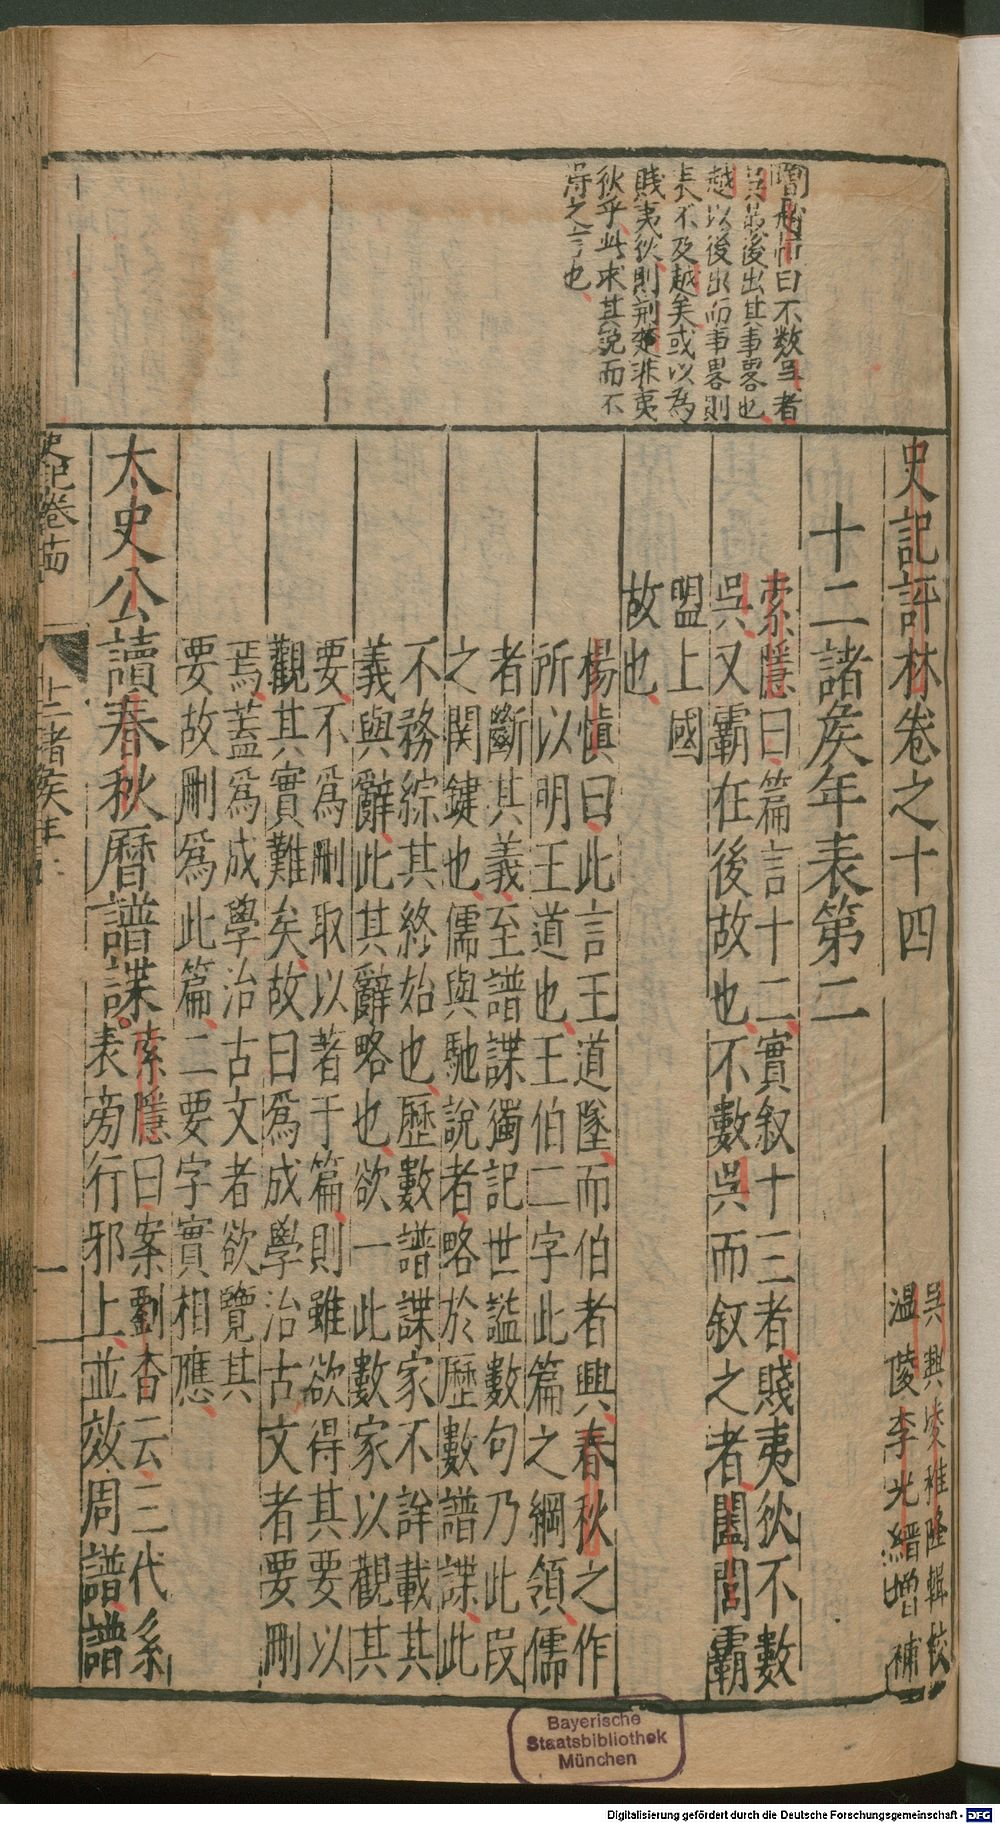 史記評林卷之十四
吳興凌稚隆輯校
温陵李光縉增補
十二諸侯年表第二
索隱曰篇言十二實叙十三者賤夷狄不數
吳又霸在後故也不數吳而叙之者闔閭霸
盟上國
故也
楊慎曰此言王道墜而伯者興春秋之作
所以明王道也王伯二字此篇之綱領儒
者斷其義至譜諜獨記世謚數句乃此段
之関鍵也儒與馳說者略於歷數譜諜此
不務綜其終始也歷數譜諜家不詳載其
義與辭此其辭略也欲一此數家以觀其
要不為刪取以著于篇則雖欲得其要以
觀其實難矣故曰為成學治古文者要刪
焉蓋為成學治古文者欲覽其
要故刪為此篇二要字實相應
太史公讀春秋曆譜諜
索隱曰案劉杳云三代系
表旁行邪上並效周譜譜
曰不數吳者
後出其事畧也
越以後出而事畧則
長不及越矣或以為
賤夷狄則荆楚非夷
狄乎此求其說而不
得之言也
史記卷十四
十二諸侯年
一
Bayerische
Staatsbibliothek
München
Digitalisierung gefördert durch die Deutsche Forschungsgemeinschaft - DFG